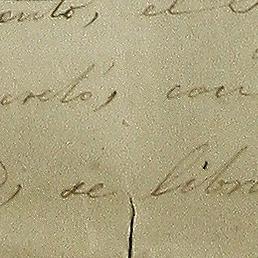 ento, el
creto, con
, se libra